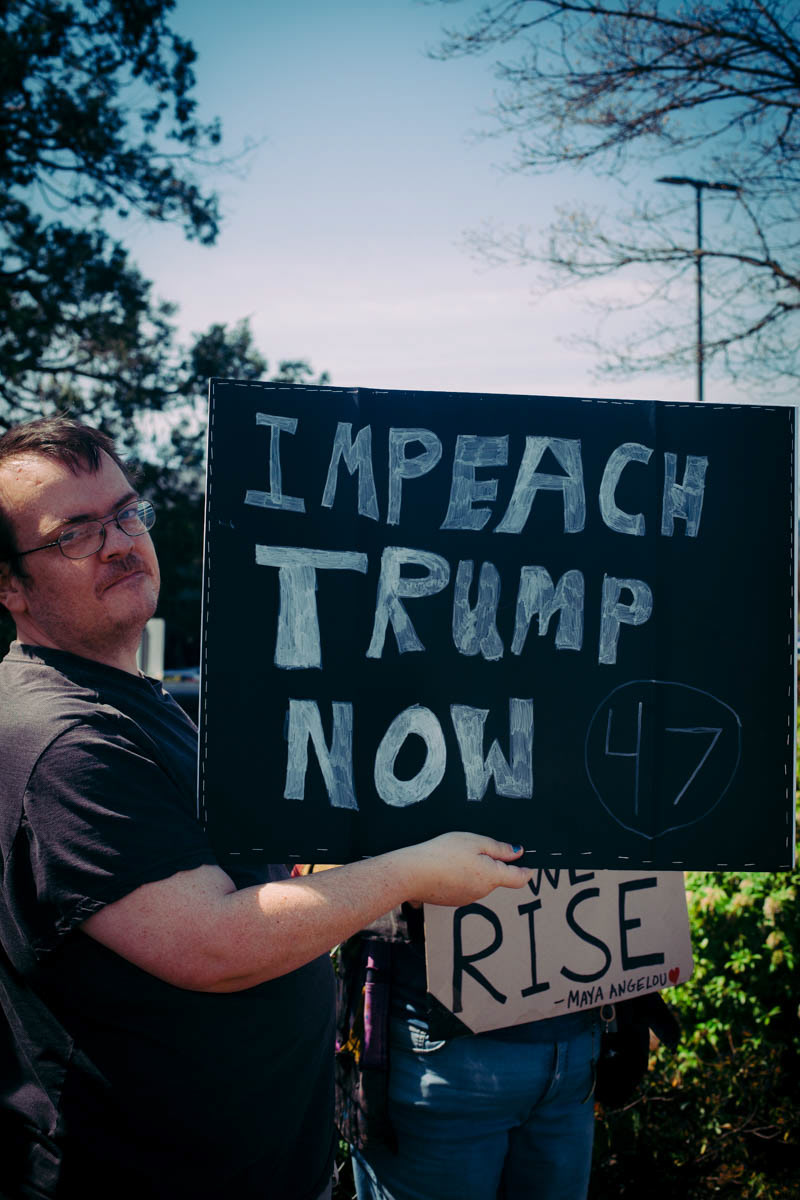 IMPEACH
TRUMP
NOW 47
WE
RISE
-MAYA ANGELOU